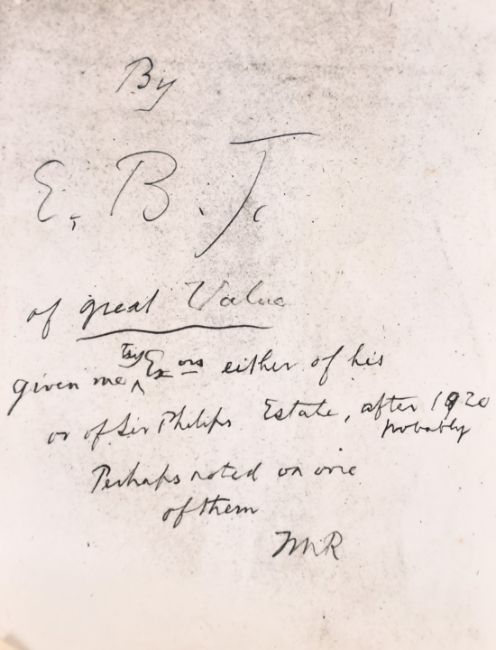 By
E. B. J.
of great Value
given me by Exors either of his
or of Sir Philips Estate, after 1920
probably
Perhaps noted on one
of them